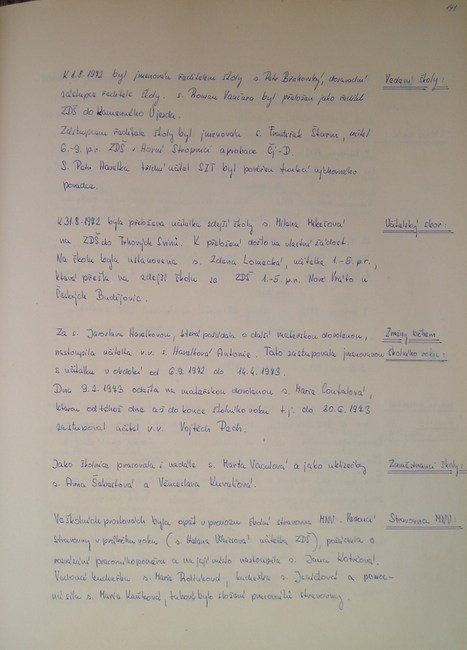 K 1.8.1982 byl jmenován ředitelem školy s. Petr, dosavadní
Vedení školy:
zástupce ředitele školy. s. Roman Vančura byl přeložen jako ředitel
ZDŠ do Kamenného Újezda.
Zástupcem ředitele školy byl jmenován s. František Šturm, učitel
6.-9. p.r. ZDŠ v Horní Stropnici aprobace Čj-D.
S. Petr Havelka třídní učitel byl pověřen funkcí výchovného
poradce.
K 31.8.1982 byla přeložena učitelka zdejší školy s. Milena
Učitelský sbor:
na ZDŠ do Trhových Svinů. K přeložení došlo na vlastní žádost.
Na školu byla ustanovena s. Zdena Lomecká, učitelka 1.-5. p.r.,
která přešla na zdejší školu ze ZDŠ 1.-5. p.r. Nové u
Českých Budějovic.
Za s. Jaroslavu Havelkovou, která požádala o další mateřskou dovolenou,
Změny během
nastoupila učitelka v.v. s. Havelková Antonie. Tato zastupovala jmenovanou
školního roku:
s. učitelku v období od 6.9.1982 do 14.4.1983.
Dne 9.2.1983 odešla na mateřskou dovolenou s. Marie,
kterou od téhož dne až do konce školního roku t.j. do 30.6.1983
zastupoval učitel v.v. Vojtěch Pech.
Jako školnice pracovala i nadále s. Marta Vaculová a jako uklízečky
Zaměstnanci školy:
s. Anna Šebestová a Venceslava.
Ve školních prostorách byla opět v provozu školní stravovna MNV. Vedoucí
Stravovna MNV:
stravovny v průběhu roku (s. Helena učitelka ZDŠ), požádala o
rozvázání pracovního poměru a na její místo nastoupila s. Jana.
Vedoucí kuchařka s. Marie, kuchařka s. a pomoc-
ná síla s. Marie, takové bylo složení pracovníků stravovny.